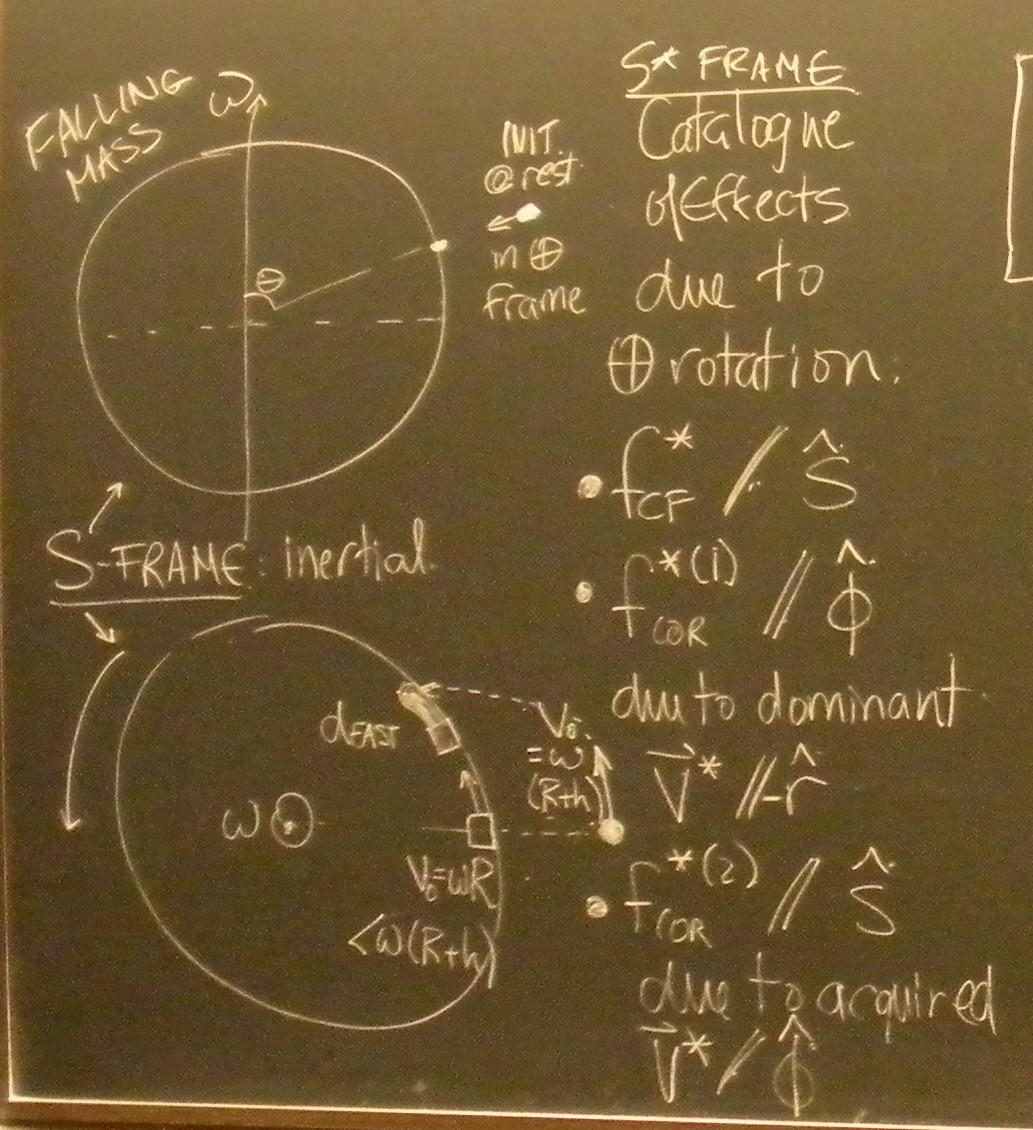 FALLING
MASS
ω
θ
INIT.
@rest
in ⊕
frame
S-FRAME: inertial
dEAST
ω⊙
V₀=ωR
<ω(R+h)
V₀
=ω
(R+h)
S* FRAME
Catalogue
of Effects
due to
⊕ rotation:
• f*CF // ŝ
• f*(1)COR // φ̂
due to dominant
v⃗* // -r̂
• f*(2)COR // ŝ
due to acquired
v⃗* // φ̂